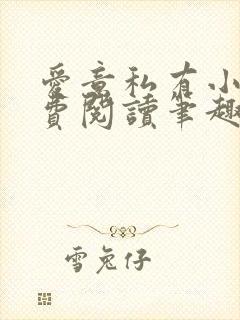 愛意私有小
費閱讀筆趣
雪兔仔